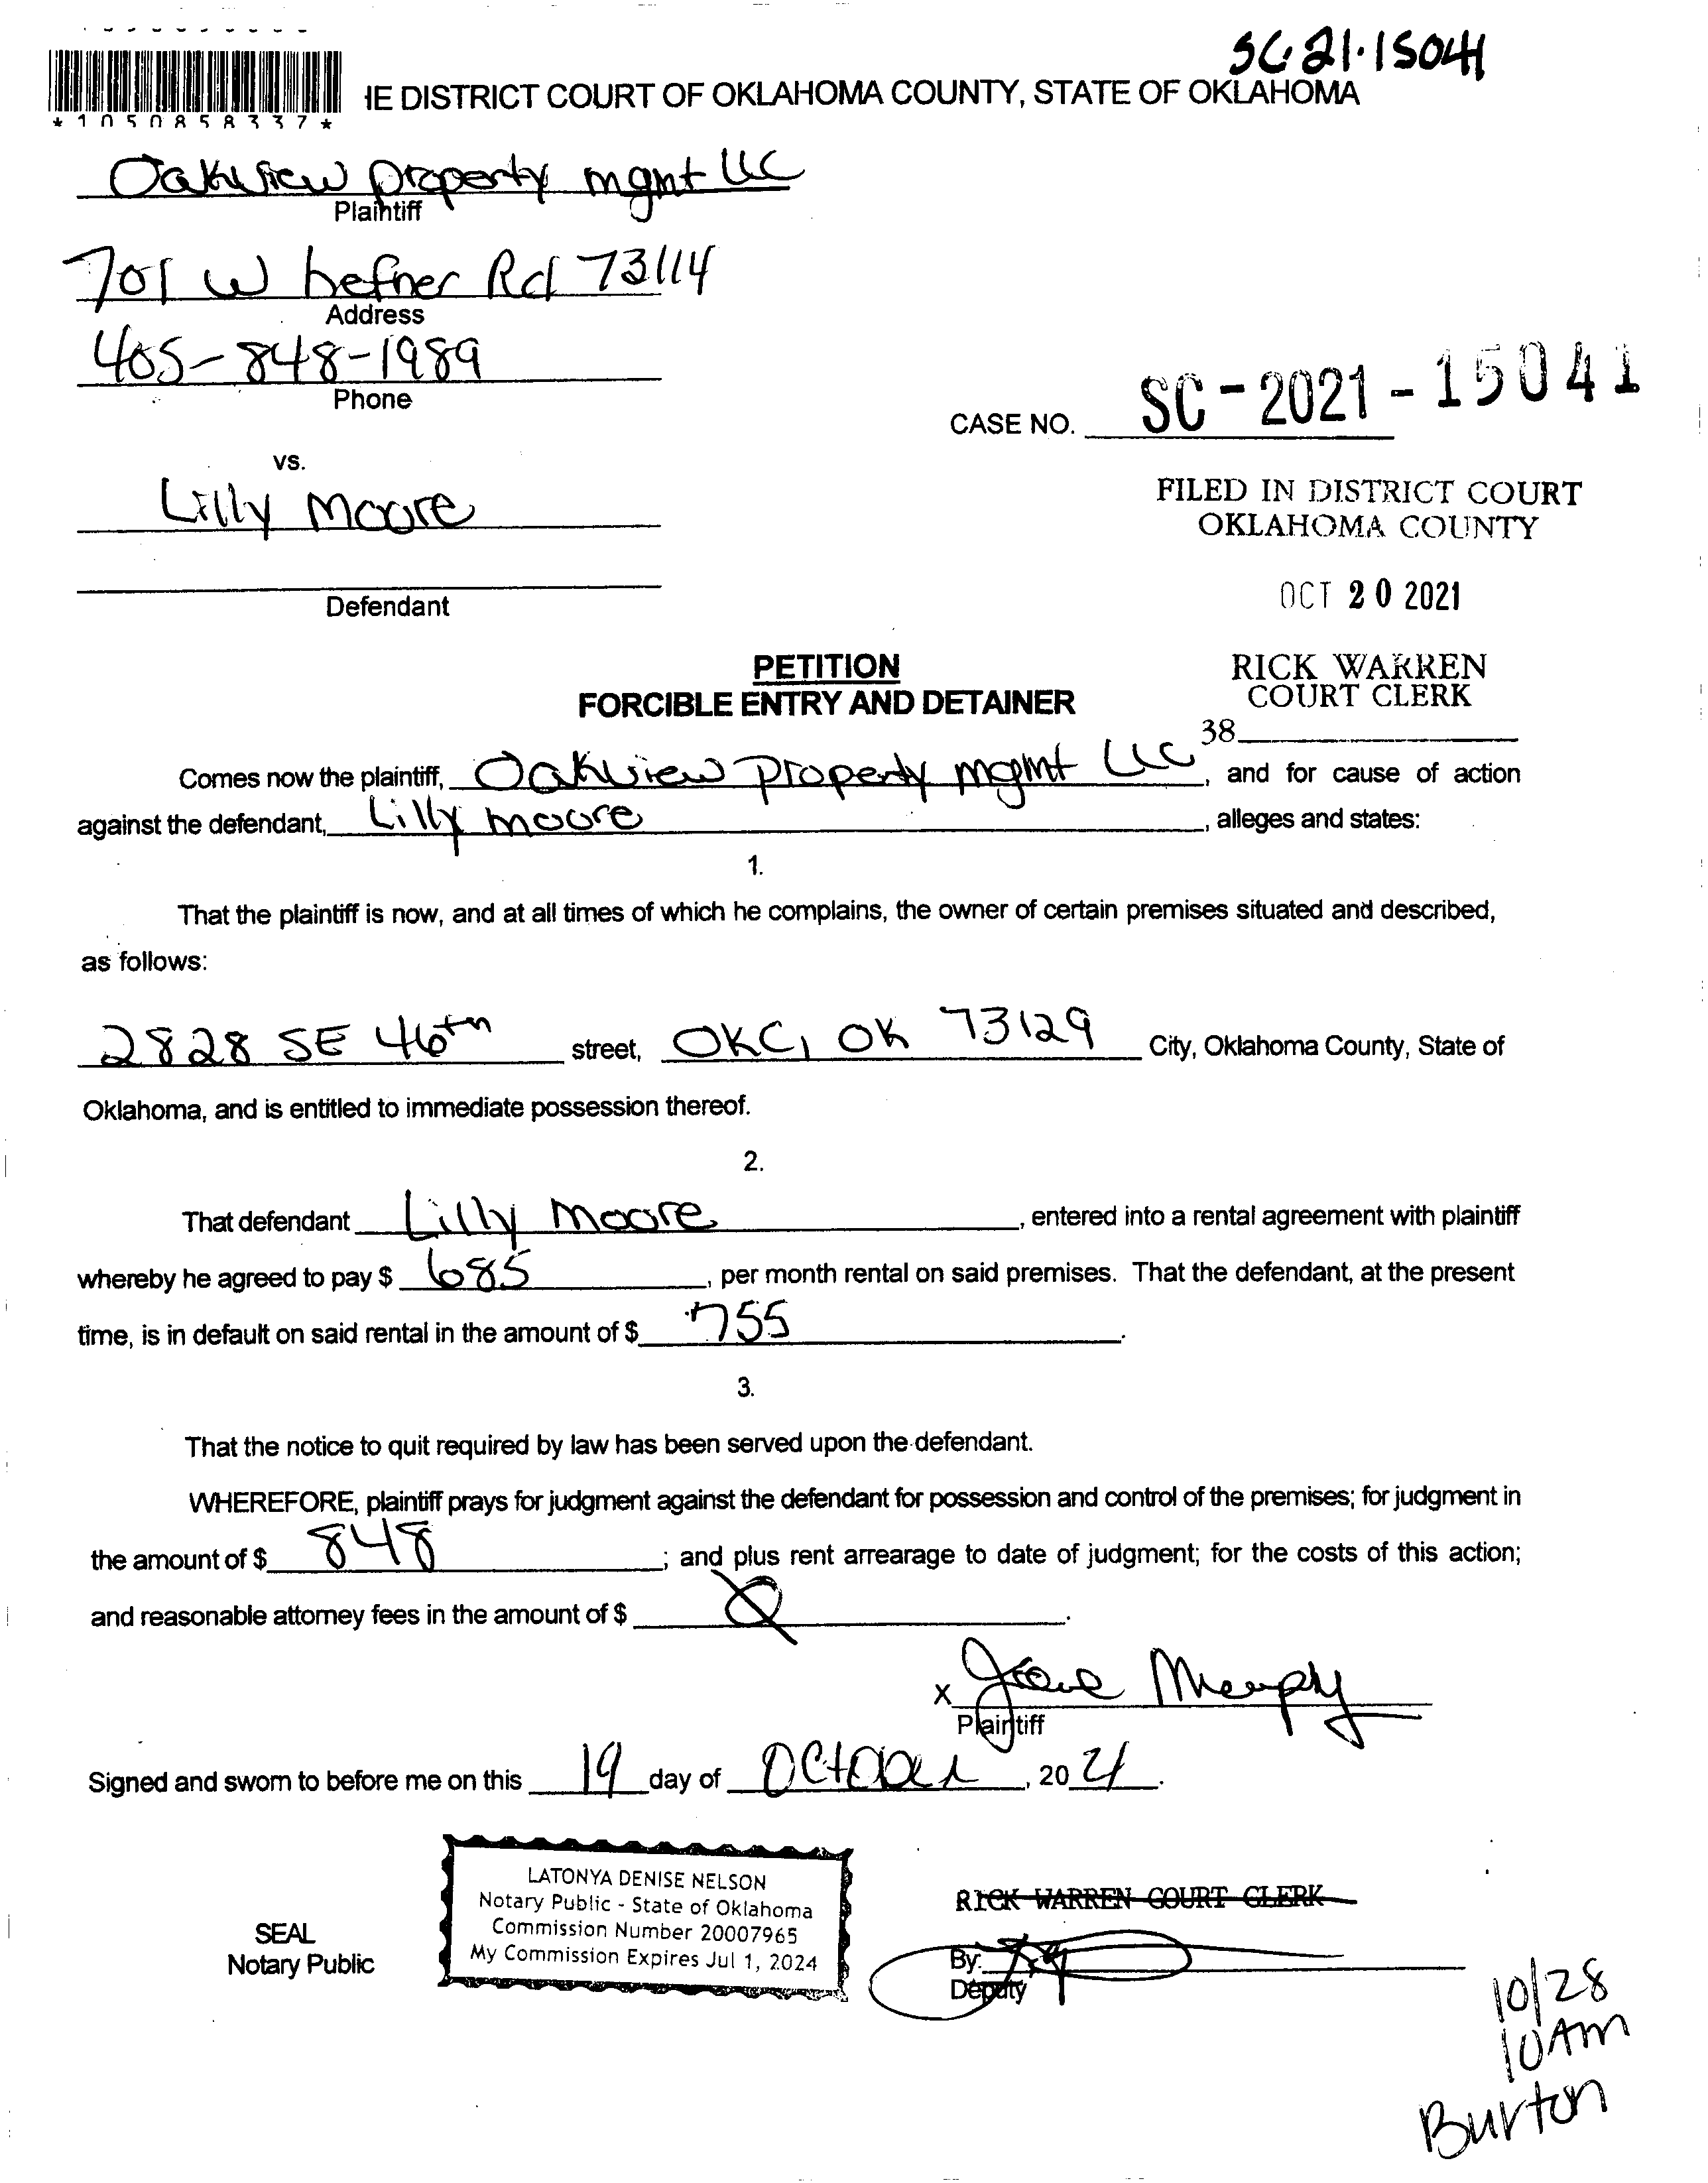 SC·21·15041
IE DISTRICT COURT OF OKLAHOMA COUNTY, STATE OF OKLAHOMA
*1050858337*
Oakview property mgmt LLC
Plaintiff
701 W hefner Rd 73114
Address
405-848-1989
Phone
CASE NO. SC-2021-15041
vs.
Lilly Moore
FILED IN DISTRICT COURT
OKLAHOMA COUNTY
Defendant
OCT 20 2021
PETITION
FORCIBLE ENTRY AND DETAINER
RICK WARREN
COURT CLERK
38
Comes now the plaintiff, Oakview property mgmt LLC, and for cause of action
against the defendant, Lilly moore, alleges and states:
1.
That the plaintiff is now, and at all times of which he complains, the owner of certain premises situated and described,
as follows:
2828 SE 46th street, OKC, OK 73129 City, Oklahoma County, State of
Oklahoma, and is entitled to immediate possession thereof.
2.
That defendant Lilly Moore, entered into a rental agreement with plaintiff
whereby he agreed to pay $ 685, per month rental on said premises. That the defendant, at the present
time, is in default on said rental in the amount of $ 755.
3.
That the notice to quit required by law has been served upon the defendant.
WHEREFORE, plaintiff prays for judgment against the defendant for possession and control of the premises; for judgment in
the amount of $ 848; and plus rent arrearage to date of judgment; for the costs of this action;
and reasonable attorney fees in the amount of $ 0.
X Murphy
Plaintiff
Signed and sworn to before me on this 19 day of October, 2021.
LATONYA DENISE NELSON
Notary Public - State of Oklahoma
Commission Number 20007965
My Commission Expires Jul 1, 2024
SEAL
Notary Public
RICK WARREN COURT CLERK
By:
Deputy
10/28
10AM
Burton